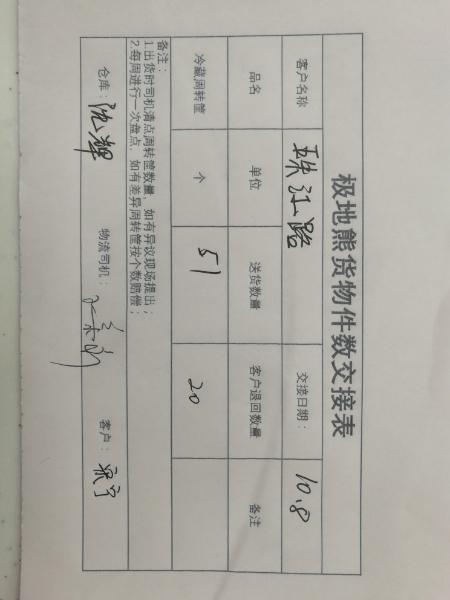 极地熊货物件数交接表
客户名称 珠江路 交接日期： 10.8
品名 单位 送货数量 客户退回数量 备注
冷藏周转筐 个 51 20
备注：
1.出货时司机清点周转筐数量，如有异议现场提出；
2.每周进行一次盘点，如有差异周转筐按个数赔偿；
仓库：沈辉 物流司机： 客户：